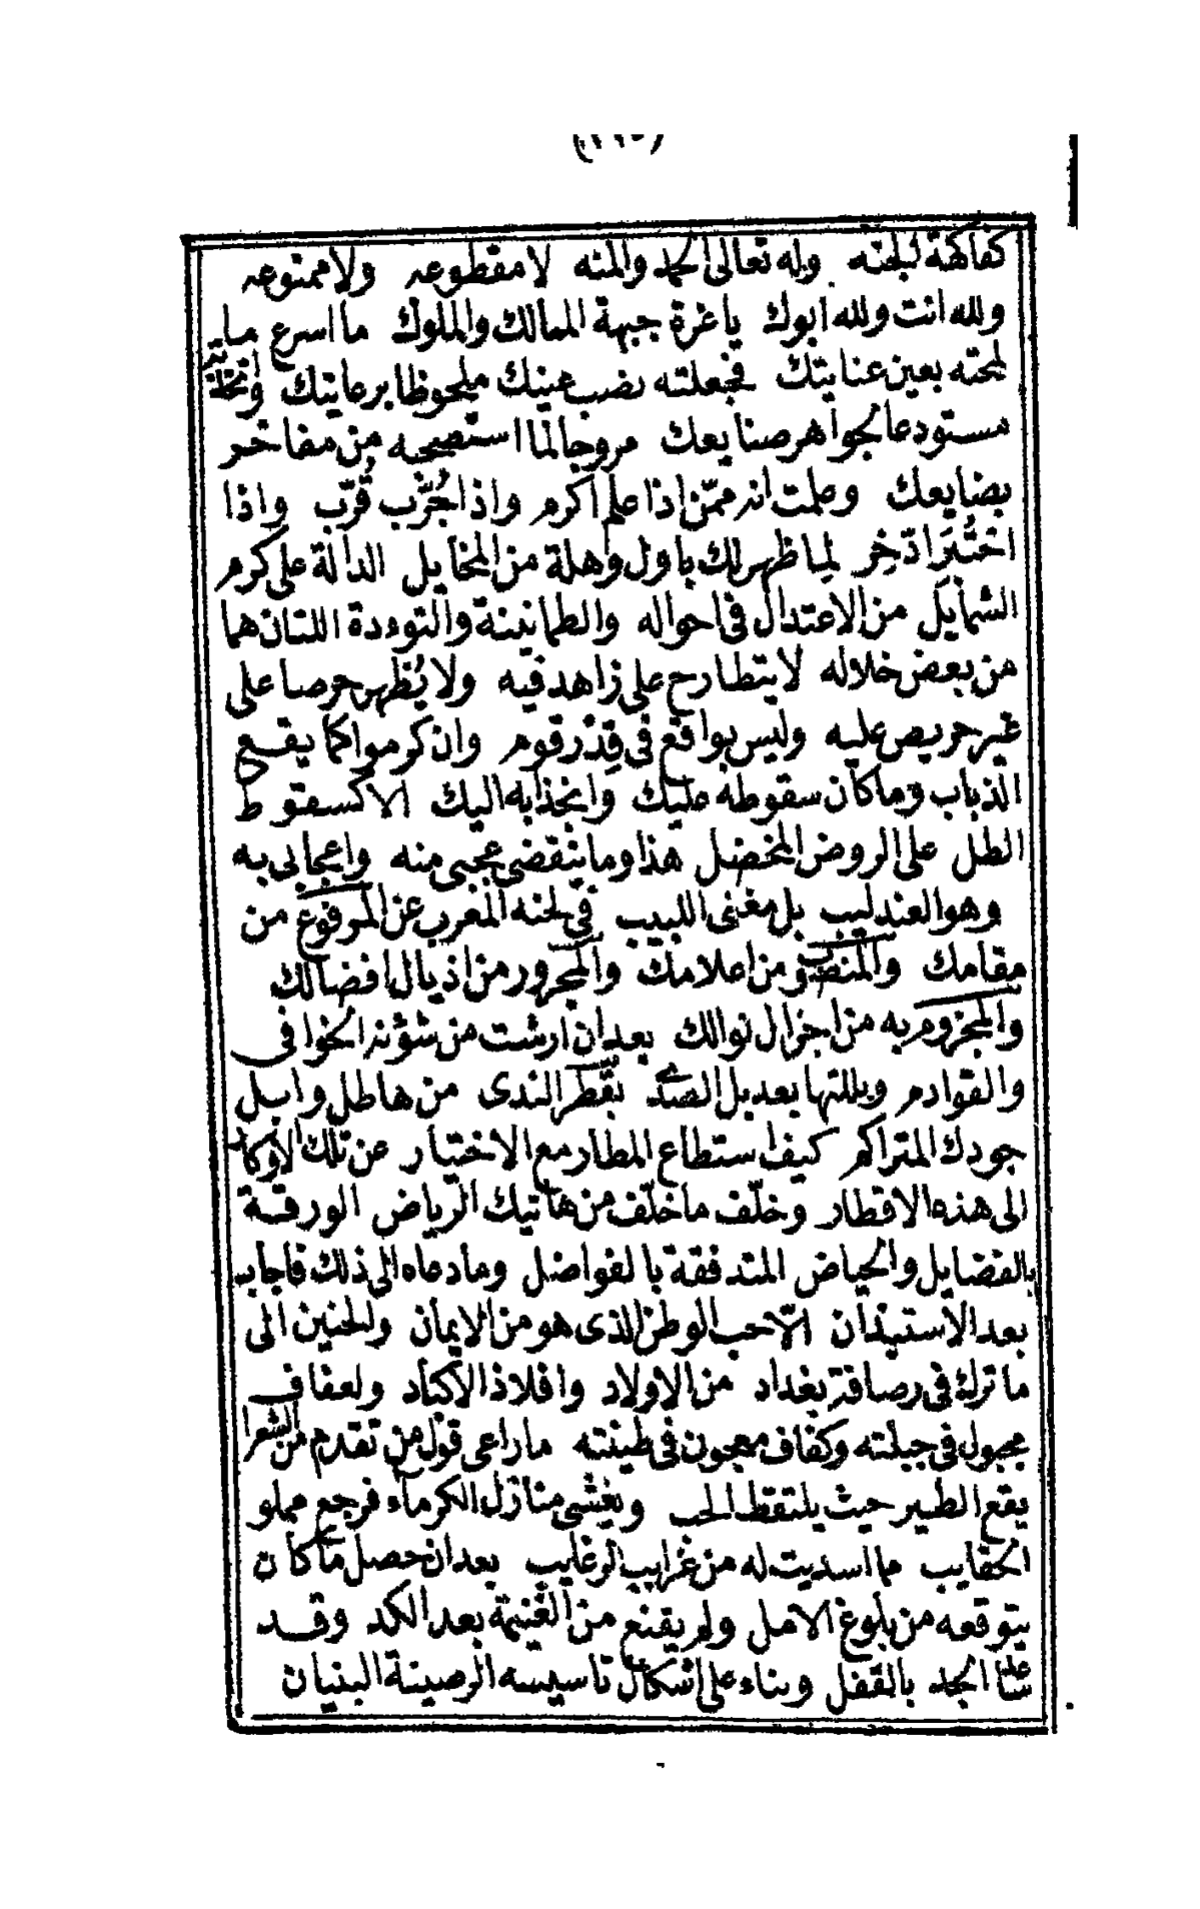 كفاكهة لجنه وله تعالى الحمد والمنه لا مقطوعه ولا ممنوعه
ولله انت ولله ابوك يا غرة جبهة الممالك والملوك ما اسرع ما
لمحته بعين عنايتك فجعلته نصب عينك ملحوظا برعايتك
مستودعا لجواهر صنايعك مروجا لما استصحبه من مفاخر
بضايعك وعلمت انه ممّن اذا علم اكرم واذا جُرّب قُرّب واذا
اختُبَر ادّخِر لِما ظهر لك باول وهلة من المخايل الدالة على كرم
الشمايل من الاعتدال فى احواله والطمانينة والتوءدة اللتان هما
من بعض خلاله لا يتطارح على زاهد فيه ولا يُظهر حرصا على
غير حريص عليه وليس بواقع فى قِدْر قوم وان كرموا كما يقع
الذباب وما كان سقوطه عليك وانجذابه اليك الا كسقوط
الطل على الروض المخضل هذا وما ينقضى عجبى منه واعجابى به
وهو العندليب بل مغنى اللبيب فى لحنه المغرب عن المرفوع من
مقامك والمنصوب من اعلامك والمجرور من اذيال افضالك
والمجزوم به من اجزال نوالك بعد ان ارشت من شؤنه الخوافى
والقوادم وبللتها بعد بل الصدى بقَطر الندى من هاطل وابل
جودك المتراكم كيف استطاع المطار مع الاختيار عن تلك الاوكار
الى هذه الاقطار وخلّف ما خلّف من هاتيك الرياض الورقة
بالفضايل والحياض المتدفقة بالفواضل وما دعاه الى ذلك فاجاب
بعد الاستيذان الّا حب الوطن الذى هو من الايمان والحنين الى
ما ترك فى رصافة بغداد من الاولاد وافلاذ الاكباد ولعفاف
مجبول فى جبلته وكفاف معجون فى طينته ما راعى قول من تقدم من الشعرا
يقع الطير حيث يلتقط الحب ويغشى منازل الكرماء فرجع مملو
الحقايب مما اسديت له من غرايب الرغايب بعد ان حصل ما كان
يتوقعه من بلوغ الامل ولم يقنع من الغنيمة بعد الكد وقد
بالقفل وبناء على اشكال تاسيسه الرصينة البنيان